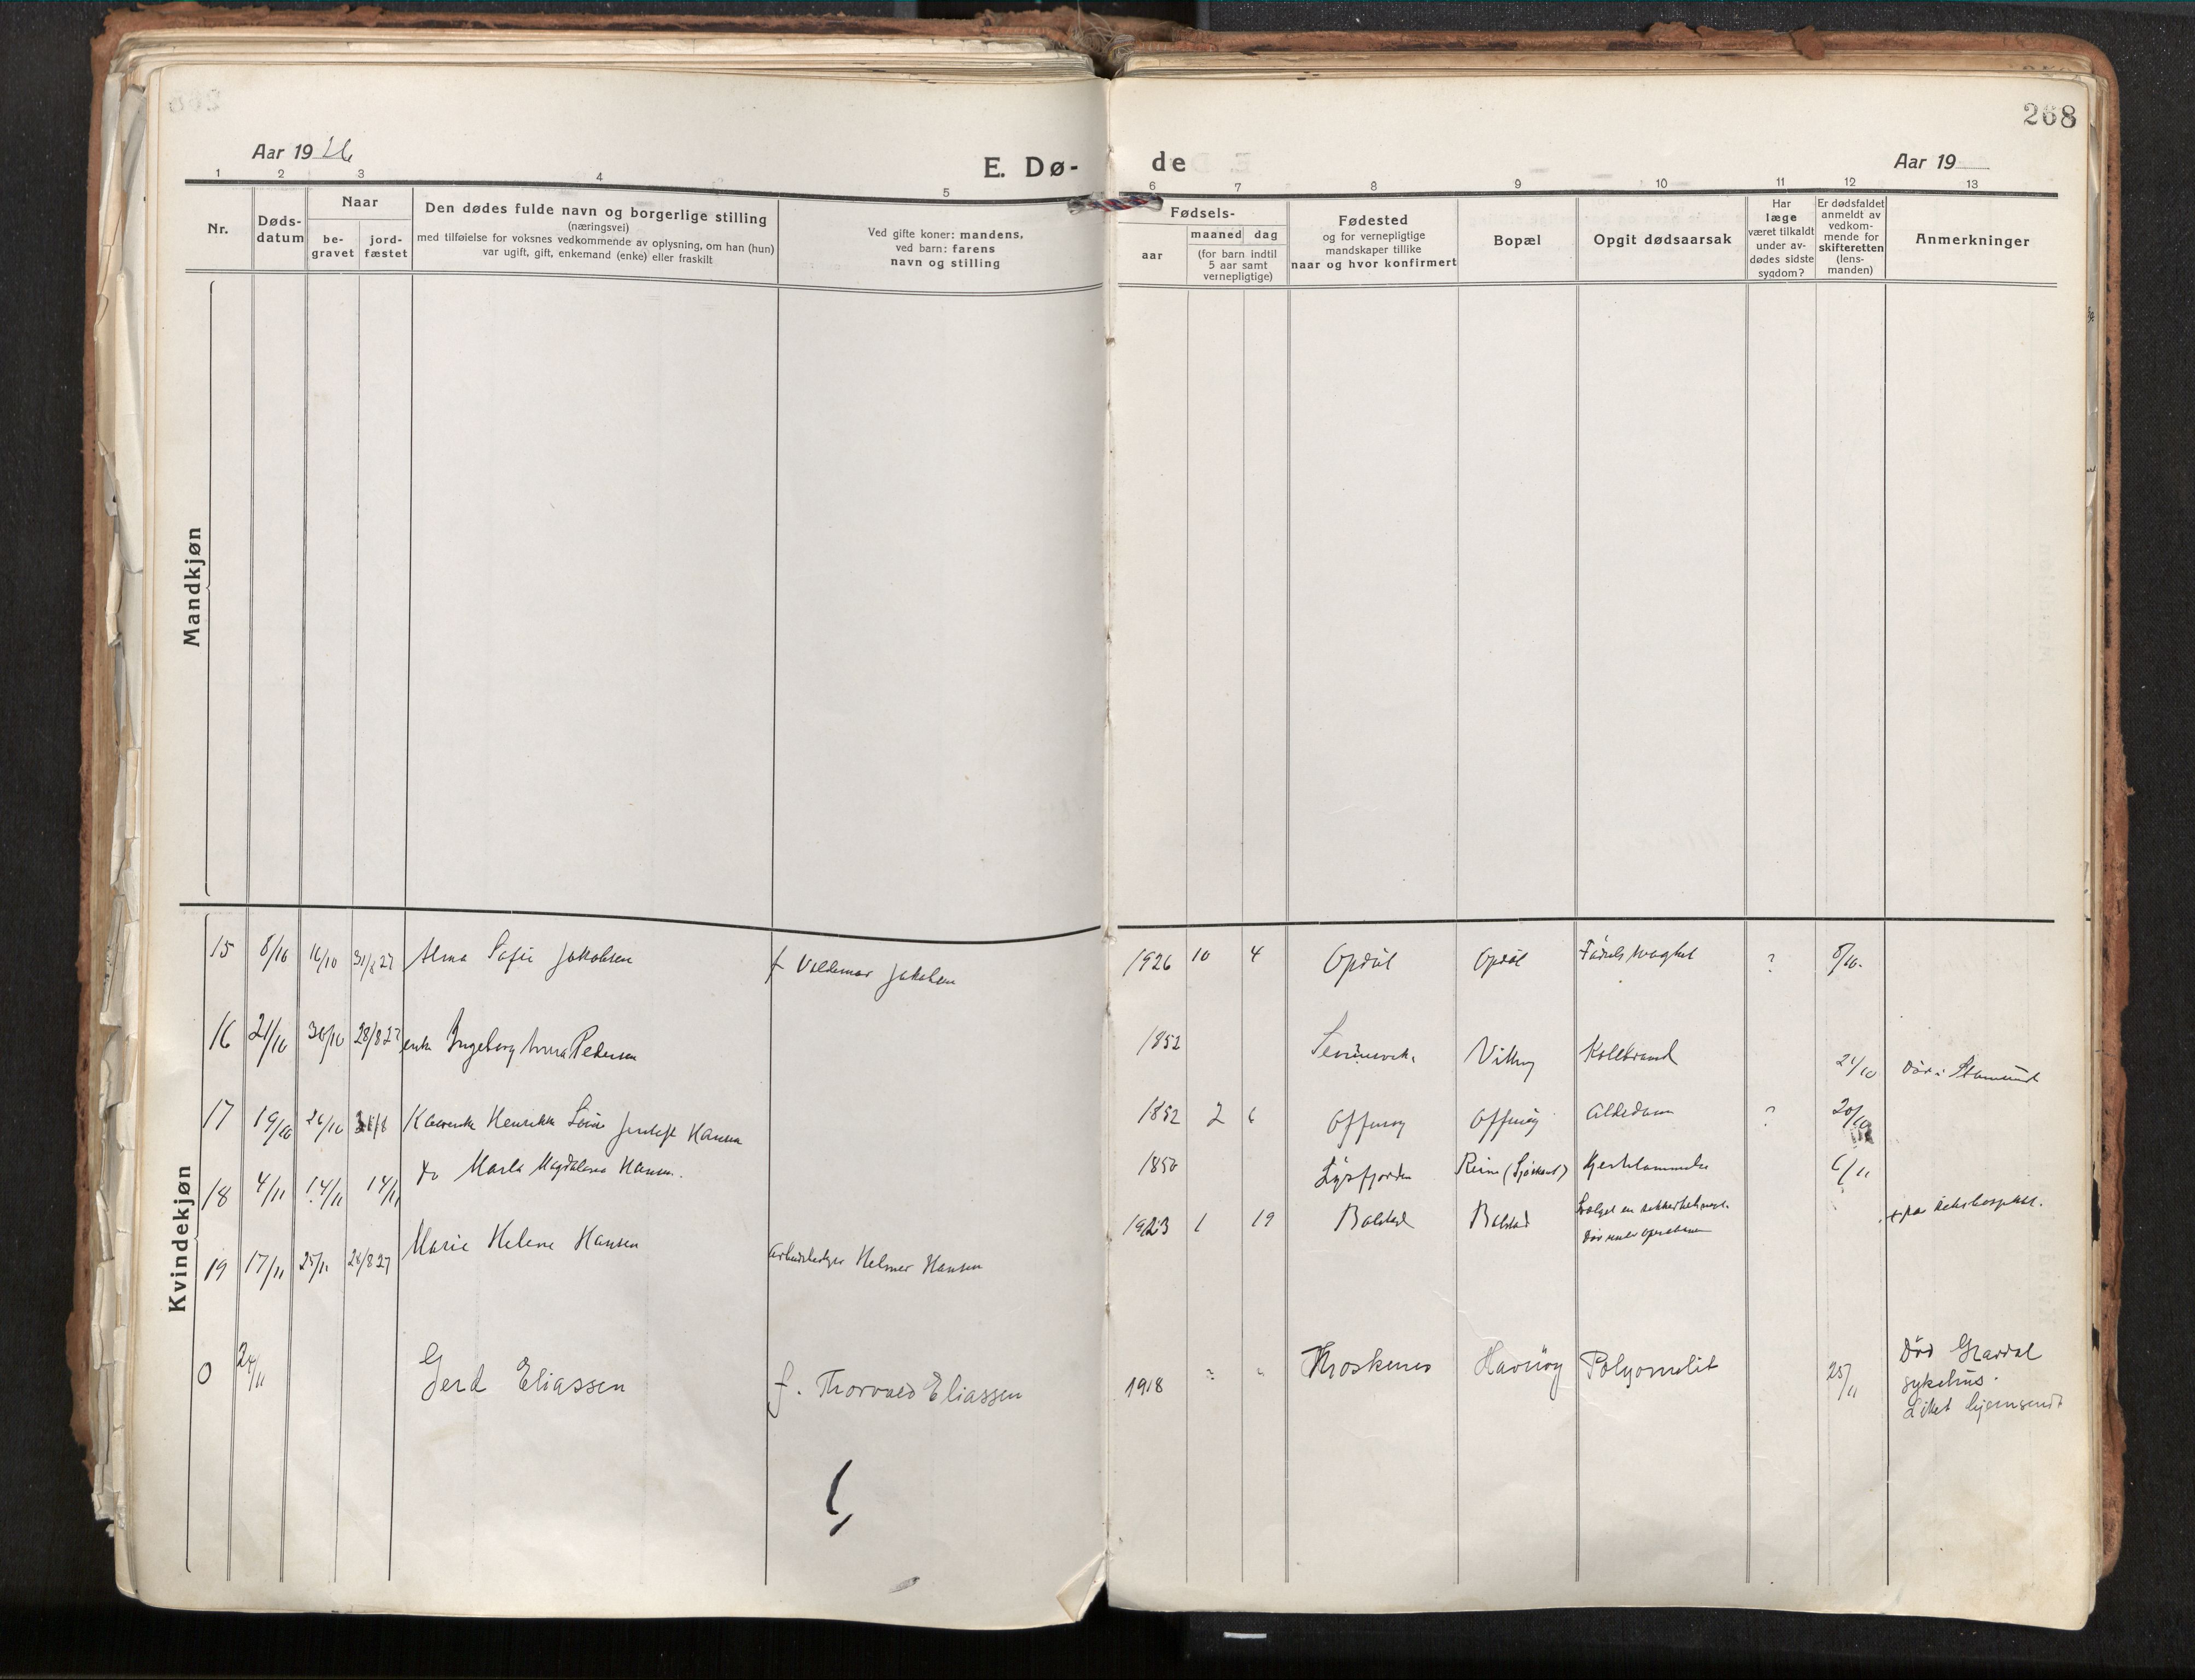 268
Aar 19 26
E. Dø-
de
Aar 19
1 2 3 4 5 6 7 8 9 10 11 12 13
Nr.
Døds-
datum
Naar
be-
gravet
jord-
fæstet
Den dødes fulde navn og borgerlige stilling
(næringsvei)
med tilføielse for voksnes vedkommende av oplysning, om han (hun)
var ugift, gift, enkemand (enke) eller fraskilt
Ved gifte koner: mandens,
ved barn: farens
navn og stilling
Fødsels-
aar
maaned dag
(for barn indtil
5 aar samt
vernepligtige)
Fødested
og for vernepligtige
mandskaper tillike
naar og hvor konfirmert
Bopæl
Opgit dødsaarsak
Har
læge
været tilkaldt
under av-
dødes sidste
sygdom?
Er dødsfaldet
anmeldt av
vedkom-
mende for
skifteretten
(lens-
manden)
Anmerkninger
Mandkjøn
Kvindekjøn
15 8/10 16/10 31/8 27 Alma Sofie Jakobsen f Valdemar Jakobsen 1926 10 4 Opdøl Opdøl ? 8/10.
16 21/10 30/10 28/8 27 enke Ingeborg Anna Pedersen 1852 Koldbrand 21/10 Død i Stamsund
17 19/10 26/10 31/8 Henrikke Hansen 1852 2 6 Offersøy Offersøy Alderdom ? 20/10
18 4/11 14/11 14/11 do Marta Magdalena Hansen. 1850 Reine 6/11
19 17/11 25/11 28/8 27 Marie Helene Hansen Helmer Hansen 1923 1 19 Balstad Balstad
0 24/11 Gerd Eliassen f. Thorvald Eliassen 1918 " " Moskenes Havnøy Polyomelit 25/11 Død Gravdal
sykehus.
Liket hjemsendt